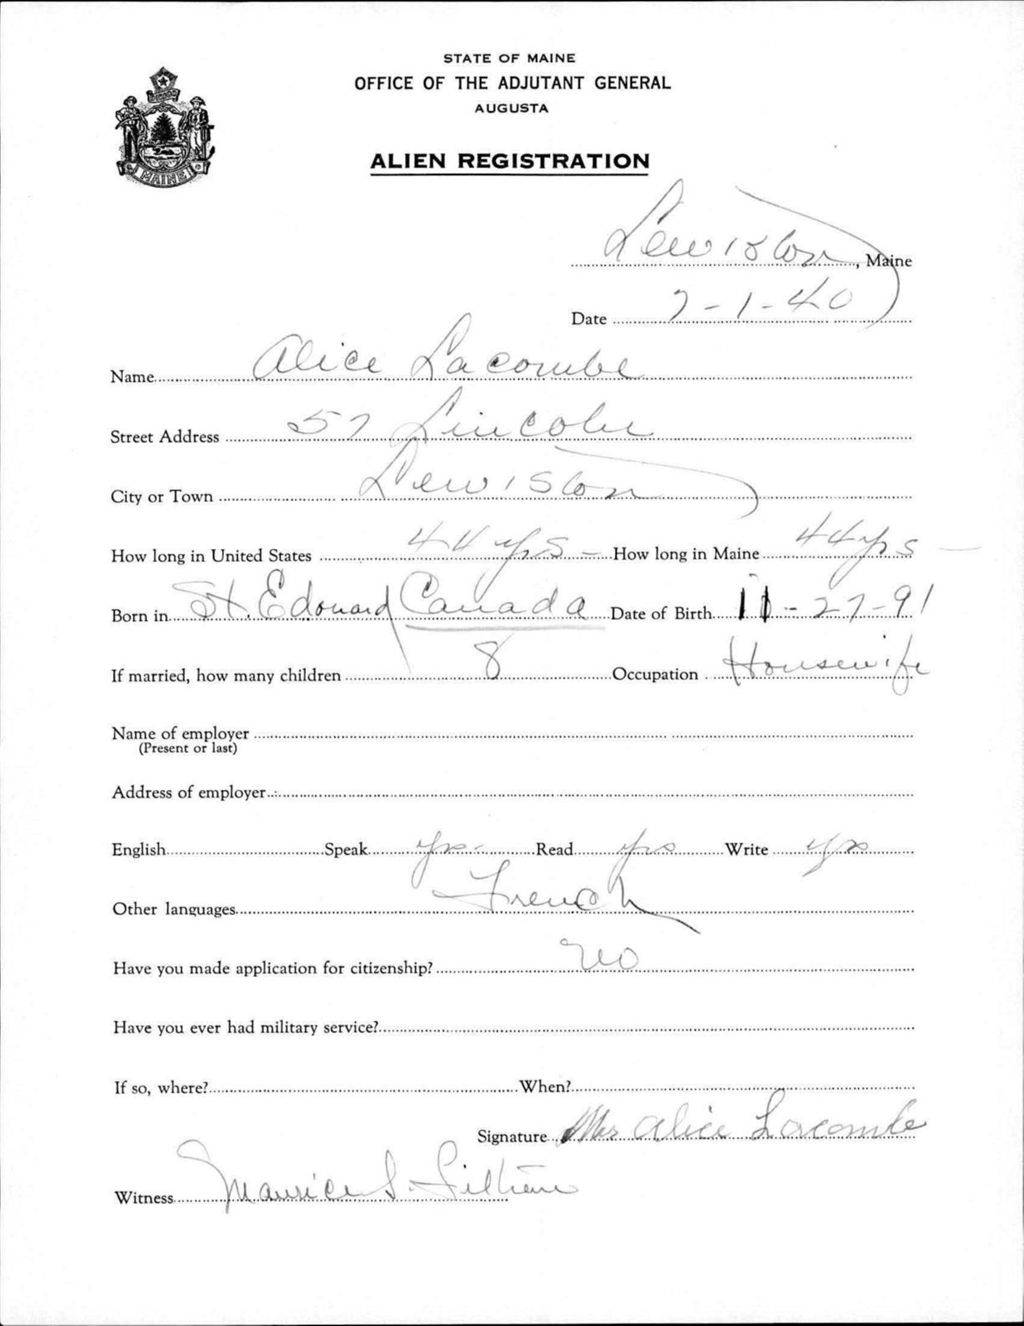 STATE OF MAINE
OFFICE OF THE ADJUTANT GENERAL
AUGUSTA
MAINE
ALIEN REGISTRATION
Lewiston, Maine
Date 7-1-40
Name Alice Lacombe
Street Address 57 Lincoln
City or Town Lewiston
How long in United States 44 yrs - How long in Maine 44 yrs -
Born in St. Edouard Canada Date of Birth 11-27-91
If married, how many children 8 Occupation Housewife
Name of employer
(Present or last)
Address of employer
English Speak yes- Read yes Write yes
Other languages French
Have you made application for citizenship? No
Have you ever had military service?
If so, where? When?
Signature Mrs Alice Lacombe
Witness Maurice